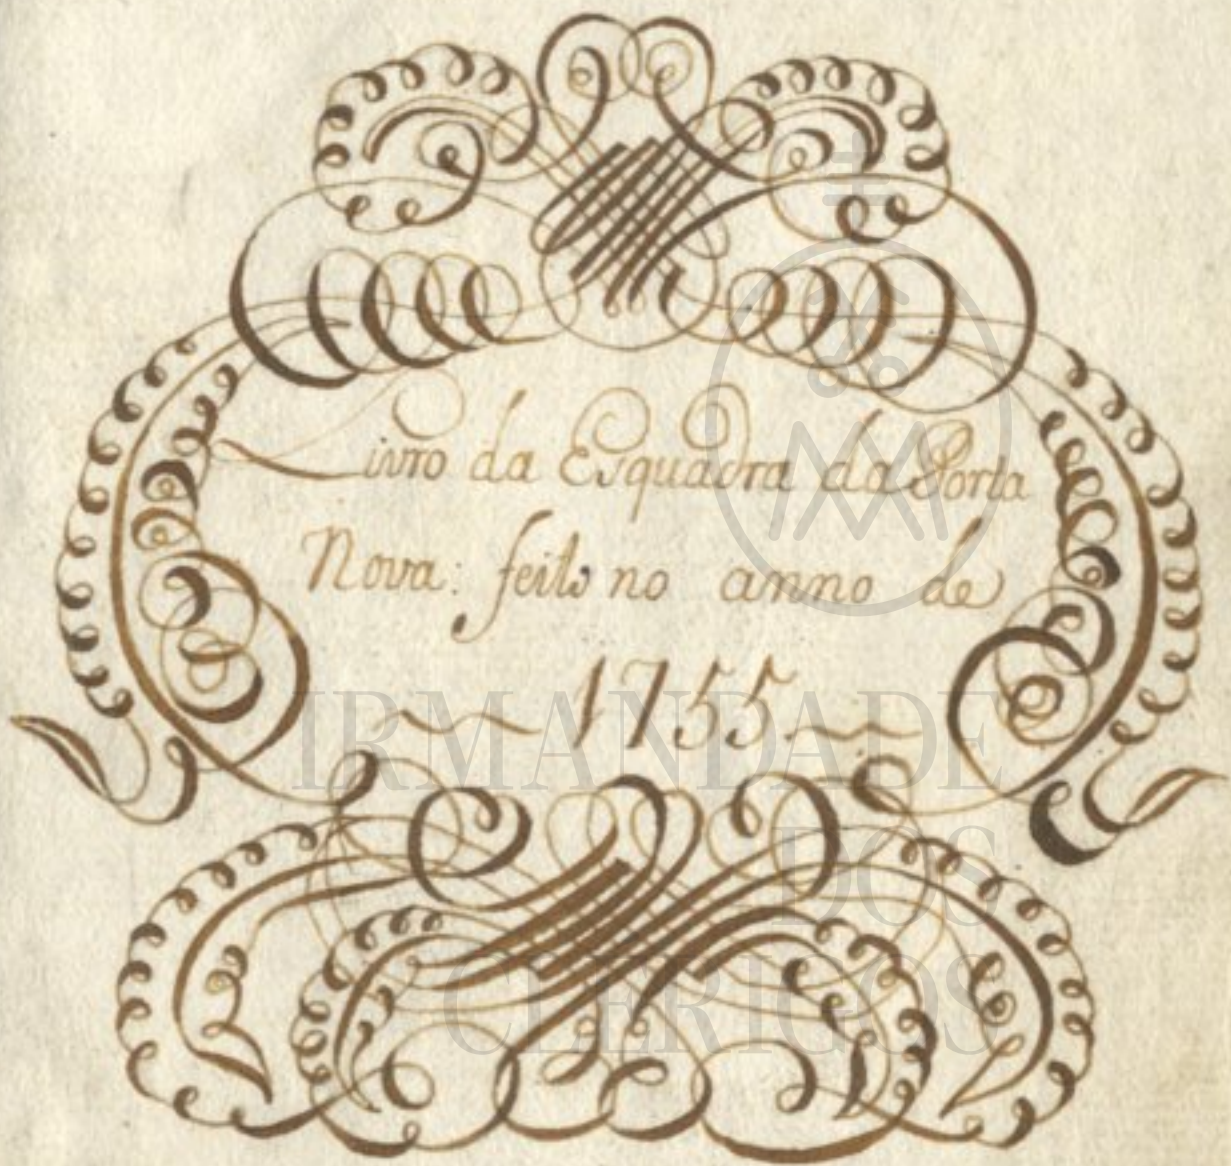 Livro da Esquadra da Porta
Nova: feito no anno de
1755
IRMANDADE
DOS
CLÉRIGOS